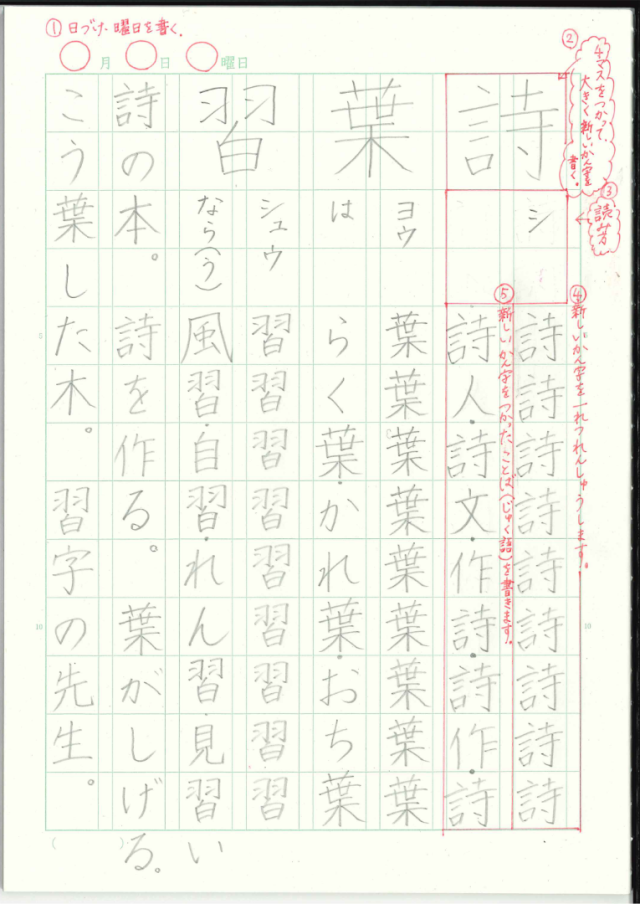 ①日づけ、曜日を書く。
月 日 曜日
②4マスをつかって、
大きく新しいかん字を
書く。
③読み方
④新しいかん字を一れつれんしゅうします。
⑤新しいかん字をつかったことば(じゅく語)を書きます。
詩
シ
詩詩詩詩詩詩詩詩詩
詩人・詩文・作詩・詩作・詩
葉
ヨウ
葉葉葉葉葉葉葉葉葉
は
らく葉・かれ葉・おち葉
習
シュウ
習習習習習習習習習
なら(う)
風習・自習・れん習・見習い
詩の本。 詩を作る。 葉がしげる。
こう葉した木。 習字の先生。
10
10